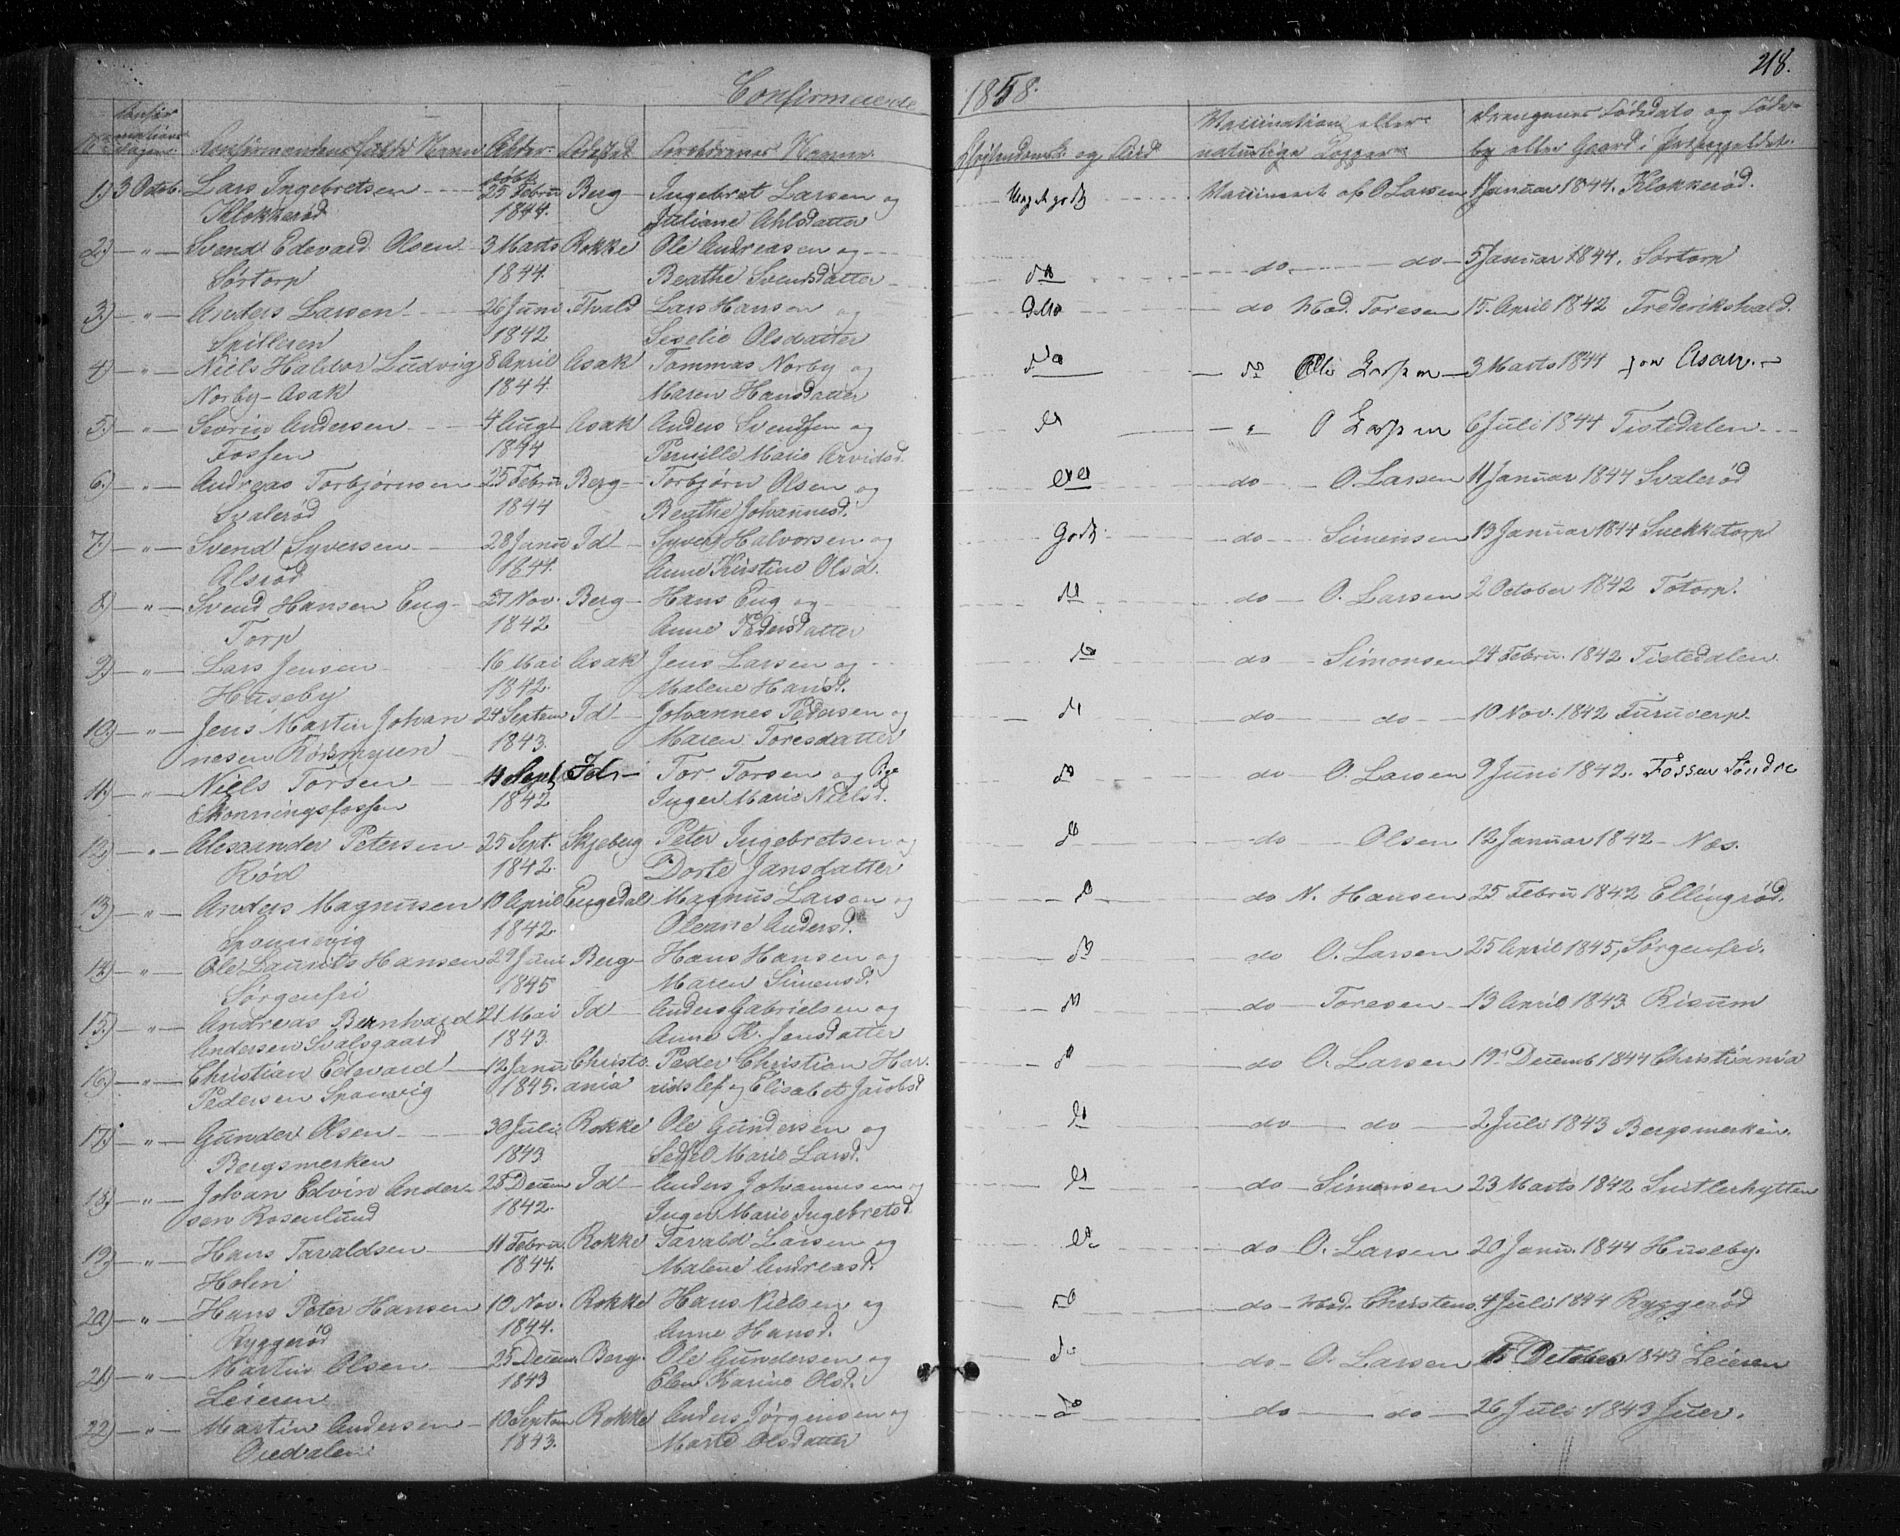 218.
Confirmerede 1858.
Confirmationsdagen Confirmandens fulde Navn Alder Dødsted Forældrenes Navne. og Vaccination eller naturlige Kopper Drengenes Fødedato og Fødeby eller Gaard i Præstegjeldet.
1) 3 Octob. Lars Ingebretsen døbt 25 Febru Berg Ingebret Larsen og Meget godt Vaccineret af O Larsen 1 Januar 1844. Klokkerød.
Klokkerød 1844. Juliane Ahlsdatter
2) " Svend Edevard Olsen 3 Marts Rokke Ole Andreasen og do do do 5 Januar 1844. Sørtorp
Sørtorp 1844. Beathe Svensdatter
3) " Anders Larsen 26 Juni Fhald Lars Hansen og Ditto do Mad. Toresen 15. April 1842 Frederikshald.
Spilleren 1842 Seselie Olsdatter
4) " Niels Haldor Ludvig 8 April Asak Tommas Norby og do do Ole Larsen 3 Marts 1844 Asak
Norby-Asak 1844. Maren Hansdatter
5) " Severin Andersen 4 Augt Asak Anders Svendsen og do " O Larsen 6 Juli 1844 Tistedalen
Fossen 1844 Pernille Marie Arvidsd.
6) " Andreas Torbjørnsen 25 Febru Berg Torbjørn Olsen og do do O. Larsen 11 Januar 1844 Svalerød
Svalerød 1844 Beathe Johannesd.
7) " Svend Syversen 28 Janu Id Syver Halvorsen og Godt do Simensen 13 Januar 1844 Snekketorp
Alsrød 1844. Anne Kirstine Olsd.
8) " Svend Hansen Eng 27 Nov. Berg Hans Eng og do do O. Larsen 2 October 1842 Totorp.
Torp 1842 Anne Pedersdatter
9) " Lars Jensen 16 Mai Asak Jens Larsen og do do Simonsen 24 Febru. 1842 Tistedalen
Huseby 1842. Malene Hansd.
10) " Jens Martin Johan 24 Septem Id Johannes Pedersen og do do do 10 Nov. 1842
nesen Kørsmyren 1843. Maren Toresdatter
11) " Niels Torsen 11 Sept Id Tor Torsen og do do O. Larsen 9 Juni 1842. Fossen Søndre
Skonningsfossen 1842 Inger Marie Nielsd.
12) " Alexander Petersen 25 Sept. Skjeberg Peter Ingebretsen og do do Olsen 12 Januar 1842 Næs.
Rød 1842. Dorte Jansdatter
13) " Anders Magnusen 10 April Engedal Magnus Larsen og do do N. Hansen 25 Febru 1842 Ellingsrød.
Sponevig 1842. Oleane Andersd.
14) " Ole Laurits Hansen 29 Juni Berg Hans Hansen og do do O. Larsen 25 April 1845, Sørgenfri.
Sørgenfri 1845 Maren Simensd.
15) " Andreas Bernhard 21 Mai Id Anders Gabrielsen og do do Toresen 13 April 1843 Risum
Andersen Svalsgaard 1843. Anne K. Jensdatter
16) " Christian Edevard 12 Janu Christi Peder Christian Har do do O. Larsen 19 Decemb 1844 Christiania
Pedersen Sponvig 1845. ania ridslef og Elisabet Jacobsd
17) " Gunder Olsen 30 Juli Rokke Ole Gundersen og do do do 2 Juli 1843 Bergsmerken.
Bergsmerken 1843 Marie Larsd.
18) " Johan Edvin Ander 28 Decem Id Anders Johannesen og do do Simensen 23 Marts 1842 Smitlerhytten
sen Rosenlund 1842. Inger Marie Ingebretsd.
19) " Hans Taraldsen 11 Febru. Rokke Tarald Larsen og do do O. Larsen 20 Janu. 1844 Huseby.
Holen 1844. Malene Andreasd.
20) " Hans Peter Hansen 10 Nov. Rokke Hans Nielsen og do do Mad. Christens. 4 Juli 1844 Ryggerød
Ryggerød 1844. Anne Hansd.
21) " Martin Olsen 25 Decem. Berg. Ole Gundersen og do do O. Larsen 15 October 1843 Leieren
Leieren 1843 Elen Karine Olsd.
22) " Martin Andersen 10 Septem Rokke Anders Jørgensen og do do do 26 Juli 1843 Juer.
1843. Marte Olsdatter